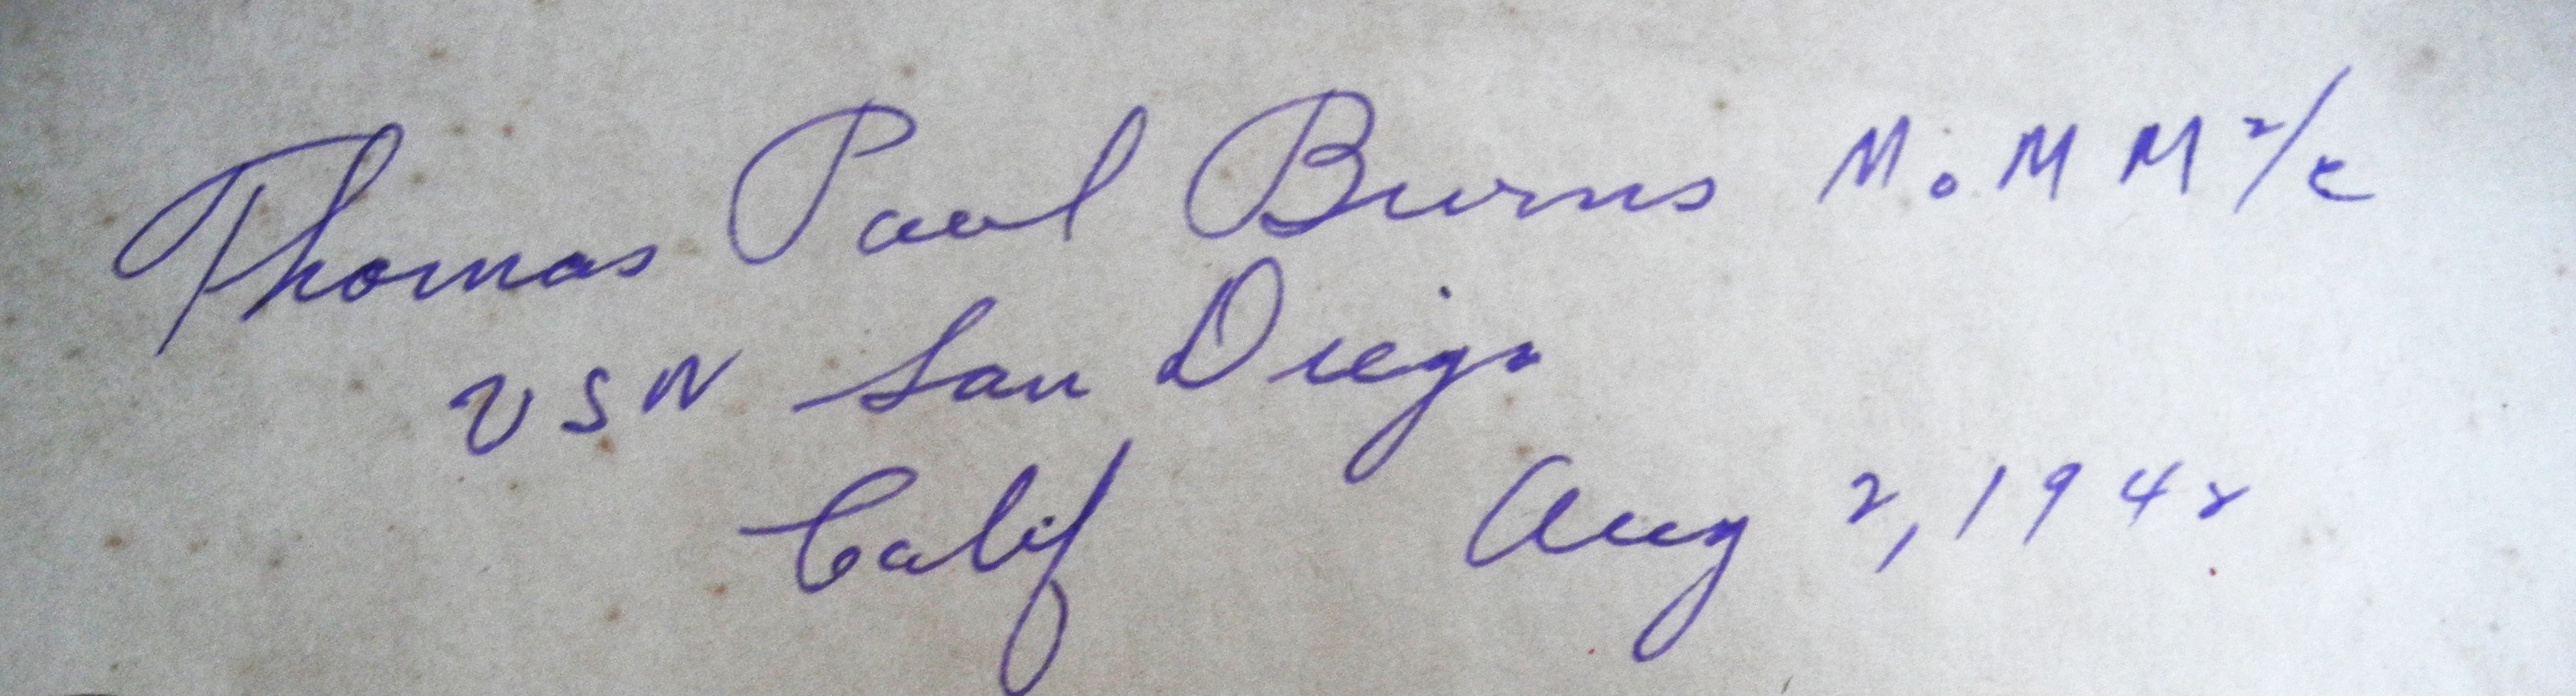 Thomas Paul Burns M.o.MM 2/c
USN San Diego
Calif Aug 2, 1942